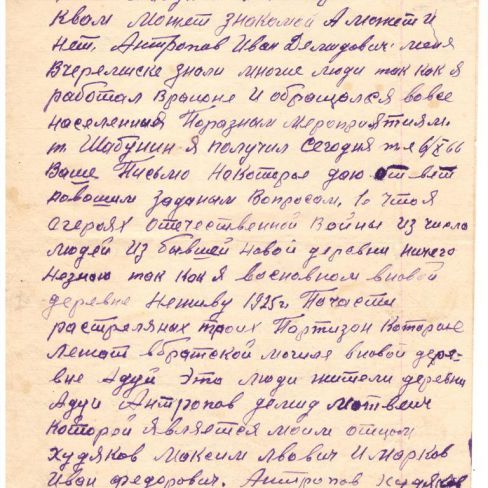 к вам может знакомой А может и
нет. Антропов Иван Демидович. меня
в черемиске знали многие люди так как я
работал в районе и обращался во все
населенния По разным мероприятиям.
т. Шабунин я получил сегодня т.е 6/XI 66
Ваше Письмо на которое даю ответ
по вашим заданам вопросам. 1о что я
о героях отечественной войны из числа
людей из бывшей новой деревни ничего
не знаю так как я в основном в новой
деревне не живу 1925г. По части
растреляных троих Партизон которые
лежат в братской могиле в новой дерев-
не Адуй это люди жители деревни
Адуи Антропов демид Мотвеич
которой является моим отцом
Худяков Максим Львович и Марков
Иван Федорович. Антропов Худяков